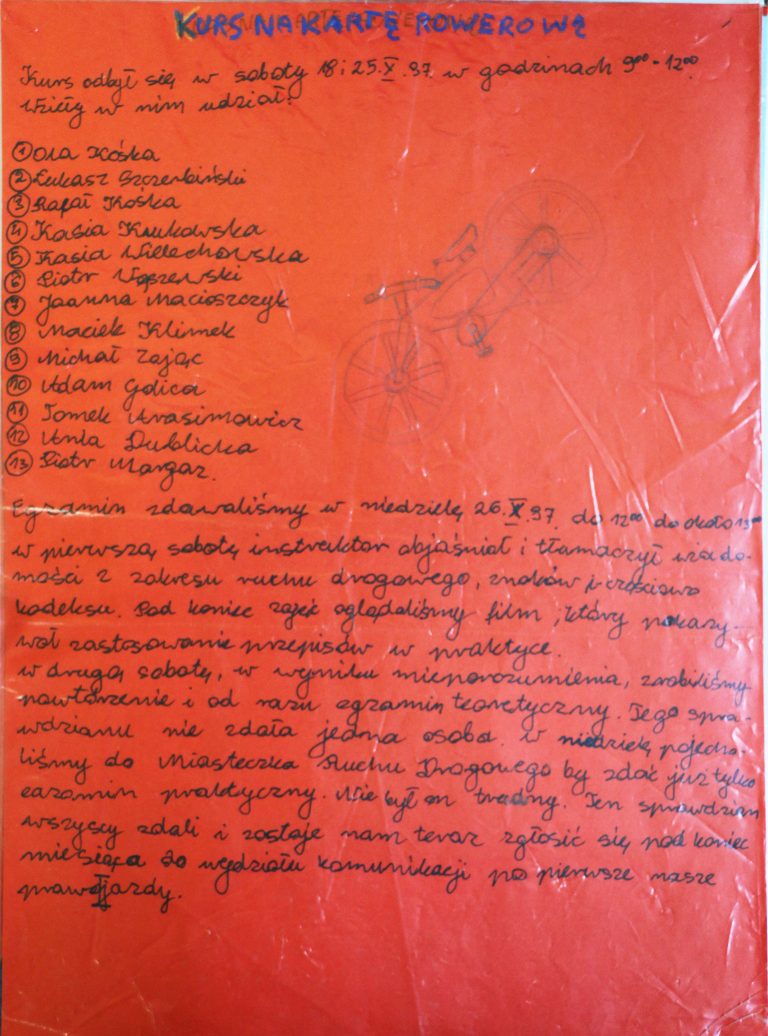 KURS NA KARTĘ ROWEROWĄ
Kurs odbył się w soboty 18 i 25.X.97 w godzinach 9⁰⁰-12⁰⁰.
Wzięły w nim udział:
1 Ola Kośka
2 Łukasz Szczerbiński
3 Rafał Kośka
4 Kasia Krukowska
5 Kasia Wielechowska
6 Piotr Wąszewski
7 Joanna Macioszczyk
8 Maciek Klimek
9 Michał Zając
10 Adam Golica
11 Tomek Arasimowicz
12 Ania Dublicka
13 Piotr Margaz.
Egzamin zdawaliśmy w niedzielę 26.X.97. do 12⁰⁰ do około 13⁰⁰
w pierwszą sobotę instruktor objaśniał i tłumaczył wiado-
mości z zakresu ruchu drogowego, znaków i częściowo
kodeksu. Pod koniec zajęć oglądaliśmy film, który pokazy-
wał zastosowanie przepisów w praktyce.
w drugą sobotę, w wyniku nieporozumienia, zrobiliśmy
powtórzenie i od razu egzamin teoretyczny. Tego spra-
wdzianu nie zdała jedna osoba. w niedzielę pojecha-
liśmy do Miasteczka Ruchu Drogowego by zdać już tylko
egzamin praktyczny. Nie był on trudny. Ten sprawdzian
wszyscy zdali i zostaje nam teraz zgłosić się pod koniec
miesiąca do wydziału komunikacji po pierwsze nasze
prawo jazdy.